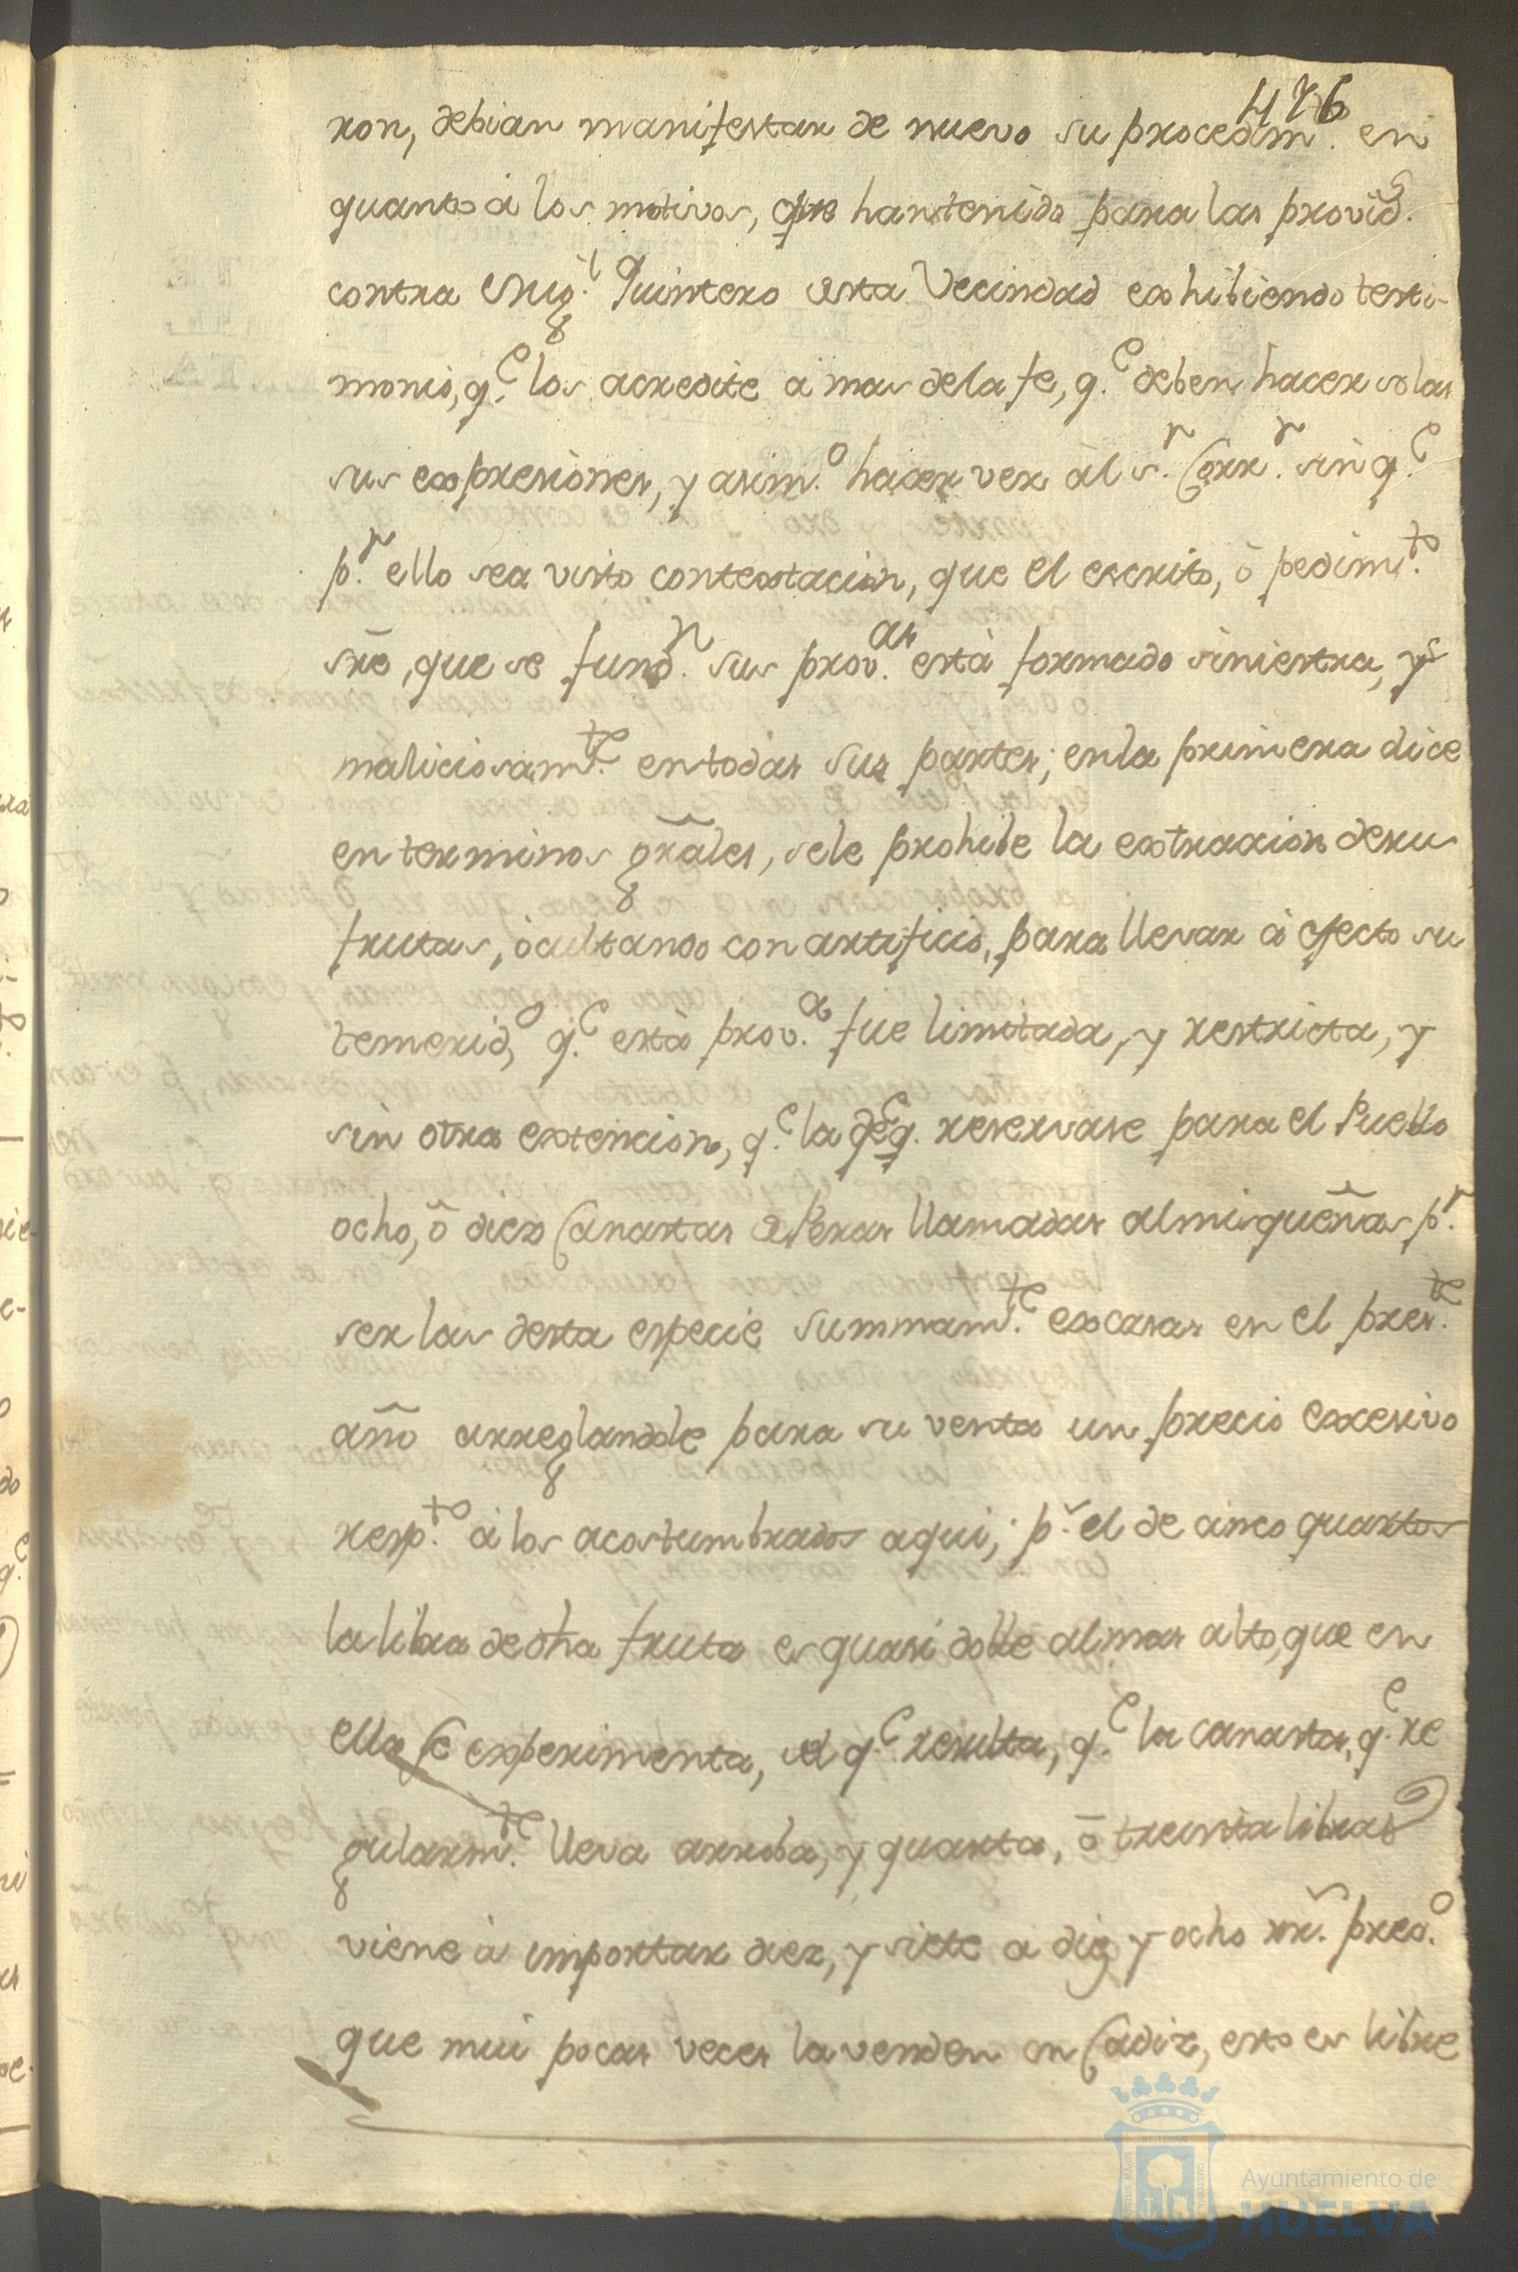 476
ron, debian manifestar de nuevo su procedim.to en
quanto à los motivos, que han tenido para las provid.s
contra Mig.l Quintero desta Vecindad exhibiendo testi-
monio, q.e los acredite a mas dela fe, q.e deben hacer solas
sus expresiones, y asim.o hacer ver àl s.r Corr.r sin q.e
p.r ello sea visto contextacion, que el escrito, ò pedim.to
sre, que se fund.n sus prov.as està formado siniestra, y
maliciosam.te en todas sus partes; enla primera dice
en terminos grâles, sele prohibe la extraccion desu
frutas, òcultando con artificio, para llevar à efecto su
temerid.d q.e està prov.a fue limitada, y restricta, y
sin otra extencion, q.e la de q.e reservase para el Pueblo
ocho, ô diez Canastas de Peras llamadas almisqueñas p.r
ser las desta especie summam.te excasas en el pres.te
año arreglandole para su venta un precio excesivo
resp.to à los acostumbrados aqui; p.r el de cinco quartos
la libra de dha fruta es quasi doble al mas alto, que en
ella se experimenta, del q.e resulta, q.e la canasta, q.e re
gularm.te lleva arroba, y quarta, ô treinta libras
viene à importar diez, y siete a diez y ocho rr.s prec.o
que mui pocas veces la venden en Cadiz, esto es libre
Ayuntamiento de
HUELVA